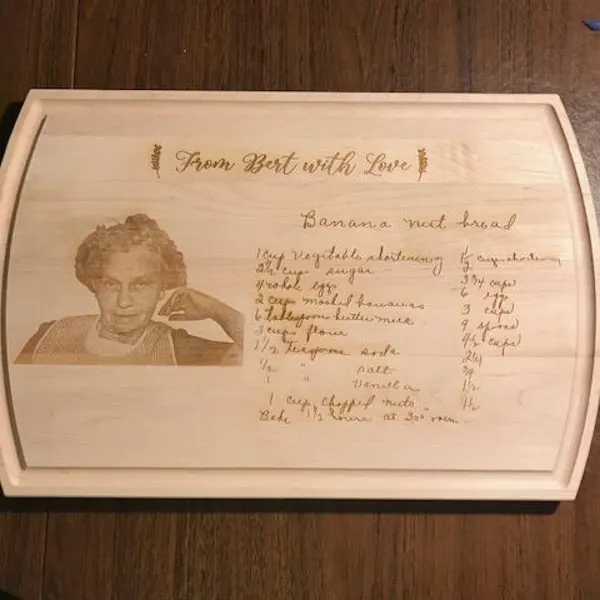 From Bert with Love
Banana nut bread
1 cup Vegitable shortening 1½ cups shortening
2½ cup sugar 3¾ cups
4 whole eggs 6 egg
2 cups mashed bananas 3 cups
6 tablespoons butter milk 9 spoons
3 cups flour 4½ cups
1½ teaspoons soda 2¼
½ " salt ¾
1 " Vanilla 1½
1 cup chopped nuts 1½
Bake 1½ hours at 300° oven.